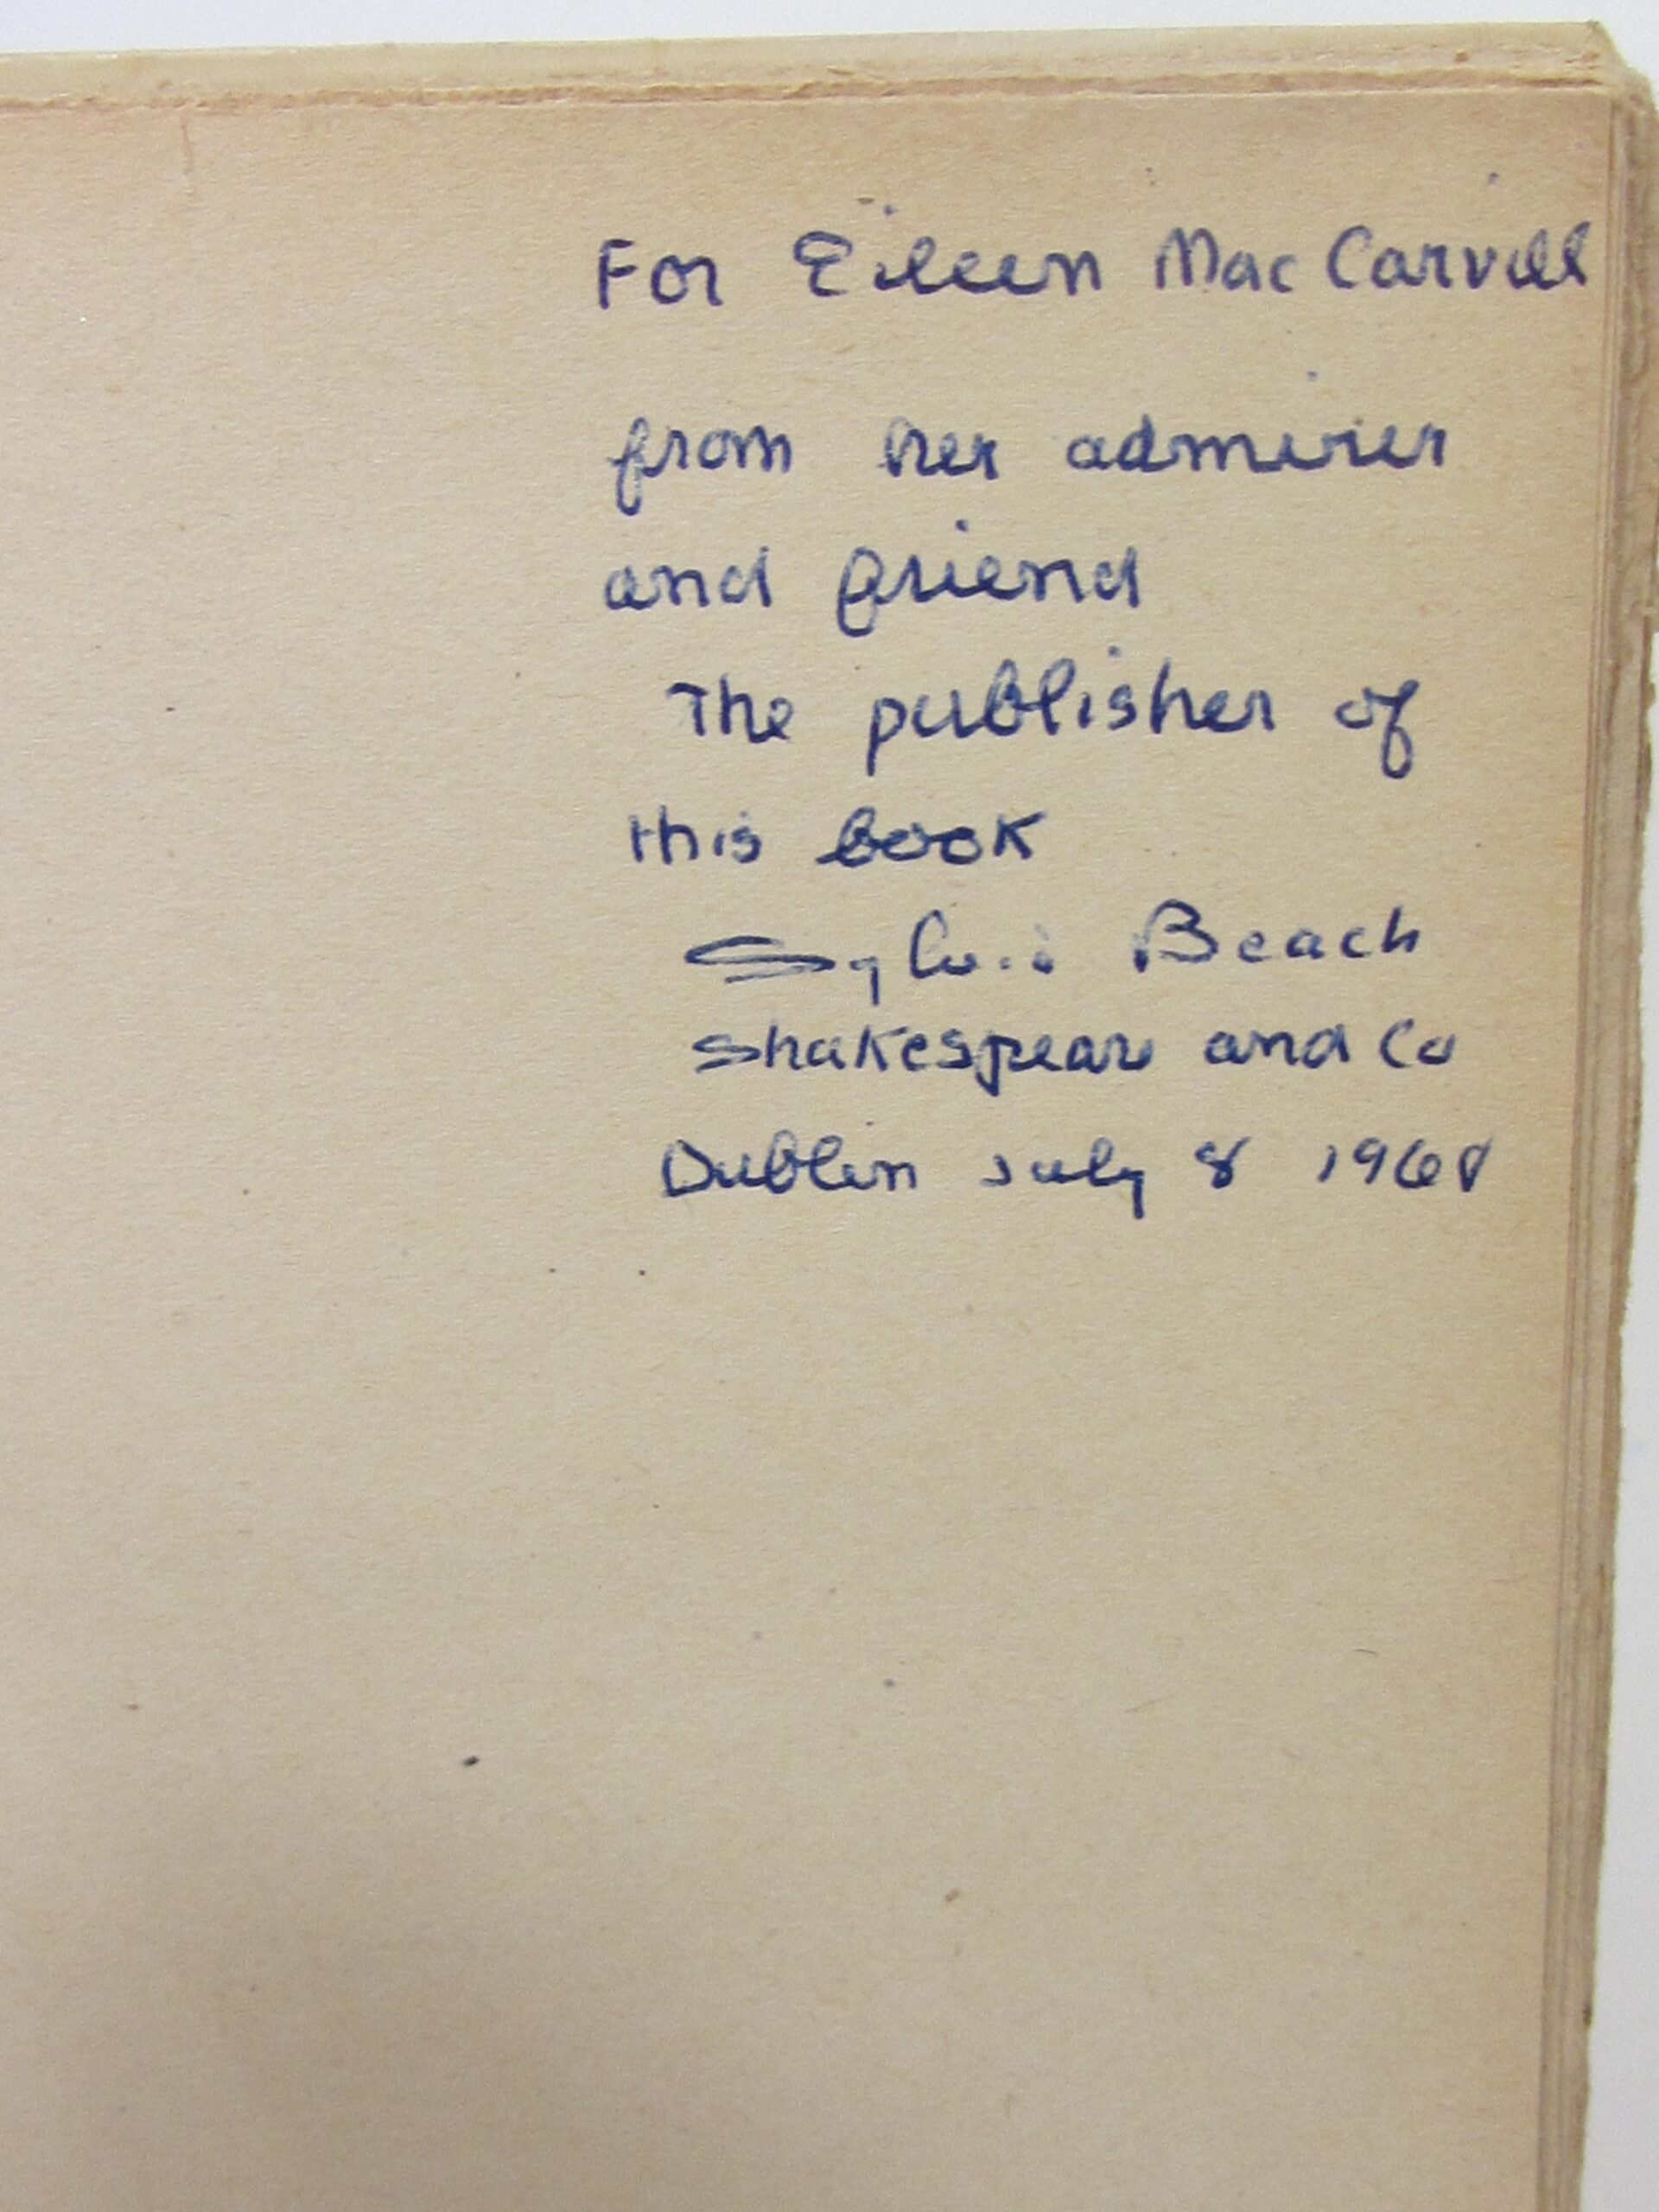 For Eileen Mac Carvill
from her admirer
and friend
The publisher of
this book
Sylvia Beach
Shakespeare and Co
Dublin July 8